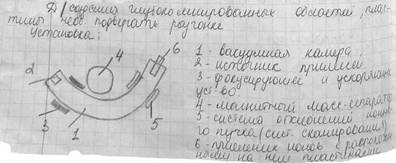 Д/создания глубоколегированных областей, плас-
тины необ. подвергать разгонке
Установка:
1 - вакуумная камера
2 - источник примеси
3 - фокусирующее и ускоряющ.
устр-во
4 - магнитной масс-сепаратор
5 - система отклонения ионно-
го пучка (сист. сканирования)
6 - приемник ионов с располож
на нем пластинами
2
4
6
3
1
5